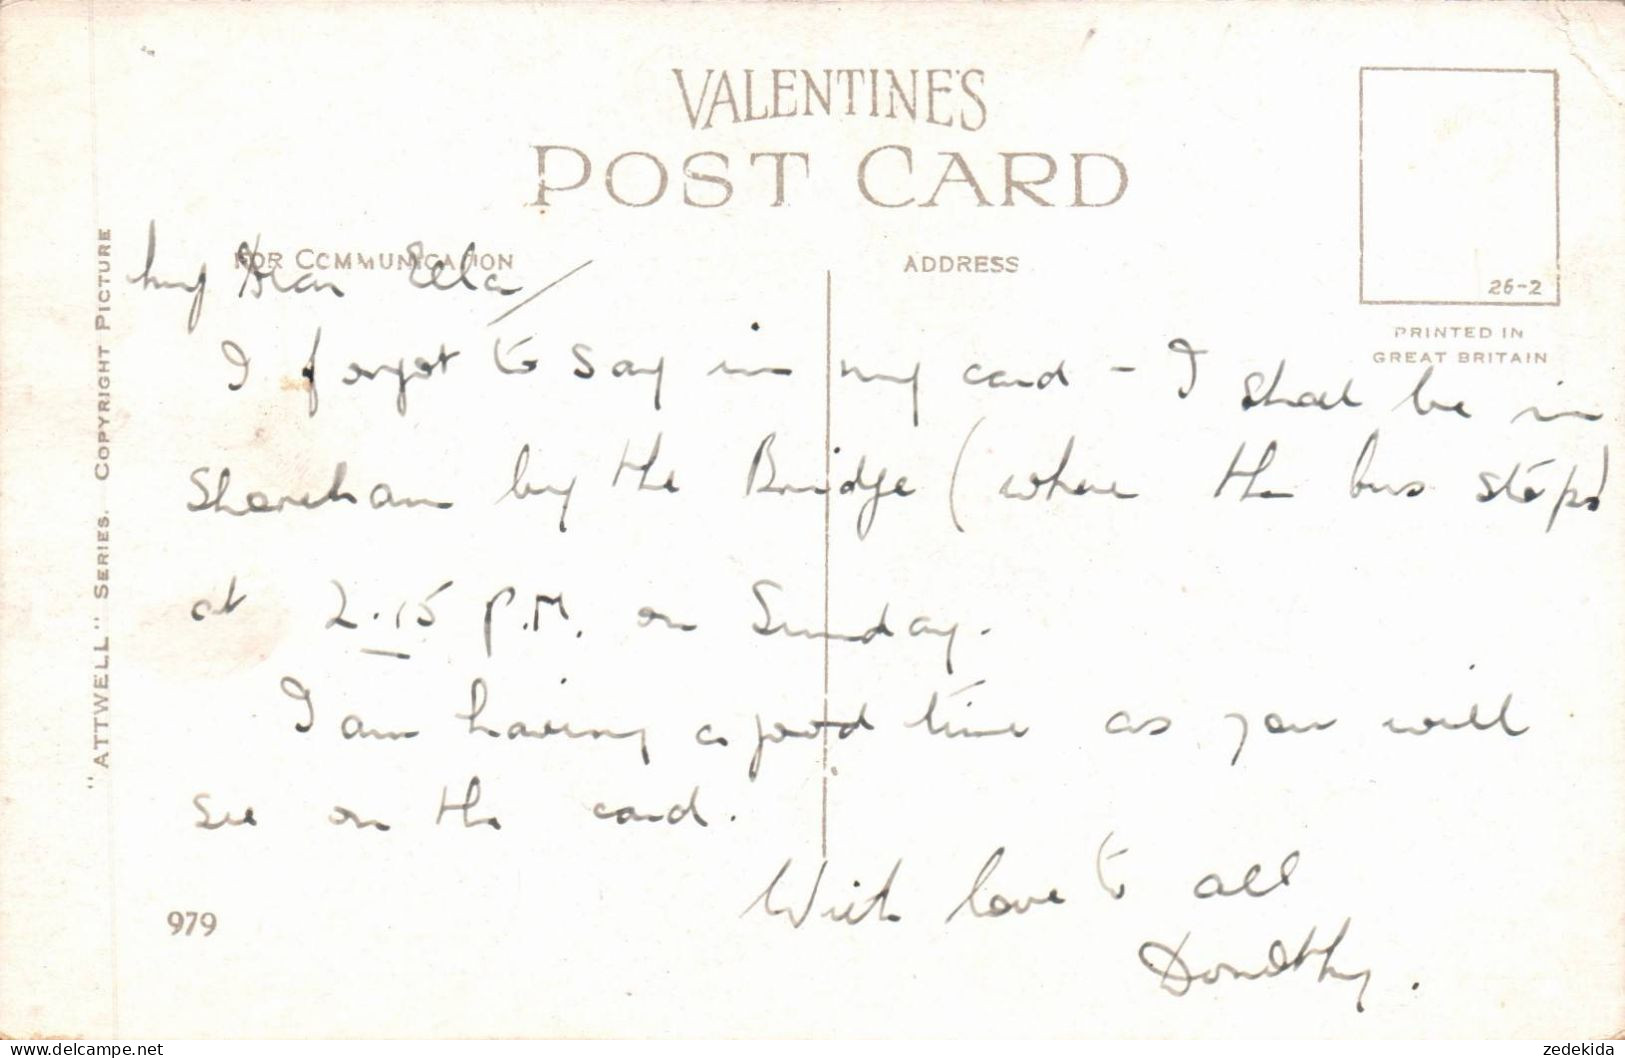 VALENTINE'S
POST CARD
FOR COMMUNICATION
ADDRESS
26-2
PRINTED IN
GREAT BRITAIN
"ATTWELL" SERIES. COPYRIGHT PICTURE
My Dear Ella
I forgot to say in my card - I shall be in
Shoreham by the Bridge (where the bus stops)
at 2.15 P.M. on Sunday.
I am having a good time as you will
see on the card.
With love to all
Dorothy.
979
zedekida